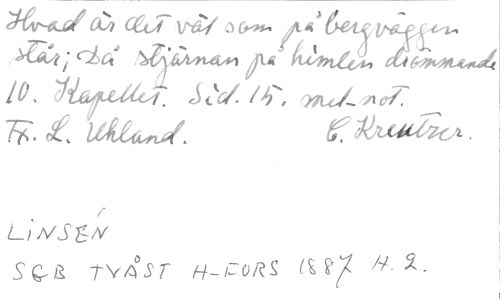 Hvad är det väl som på bergväggen
står; Då stjärnan på himlen drömmande
10. Kapellet. Sid. 15. met-not.
Fr. L. Uhland. C. Kreutzer.
LINSÉN
SGB TVÅST H-FORS 1887 H. 2.